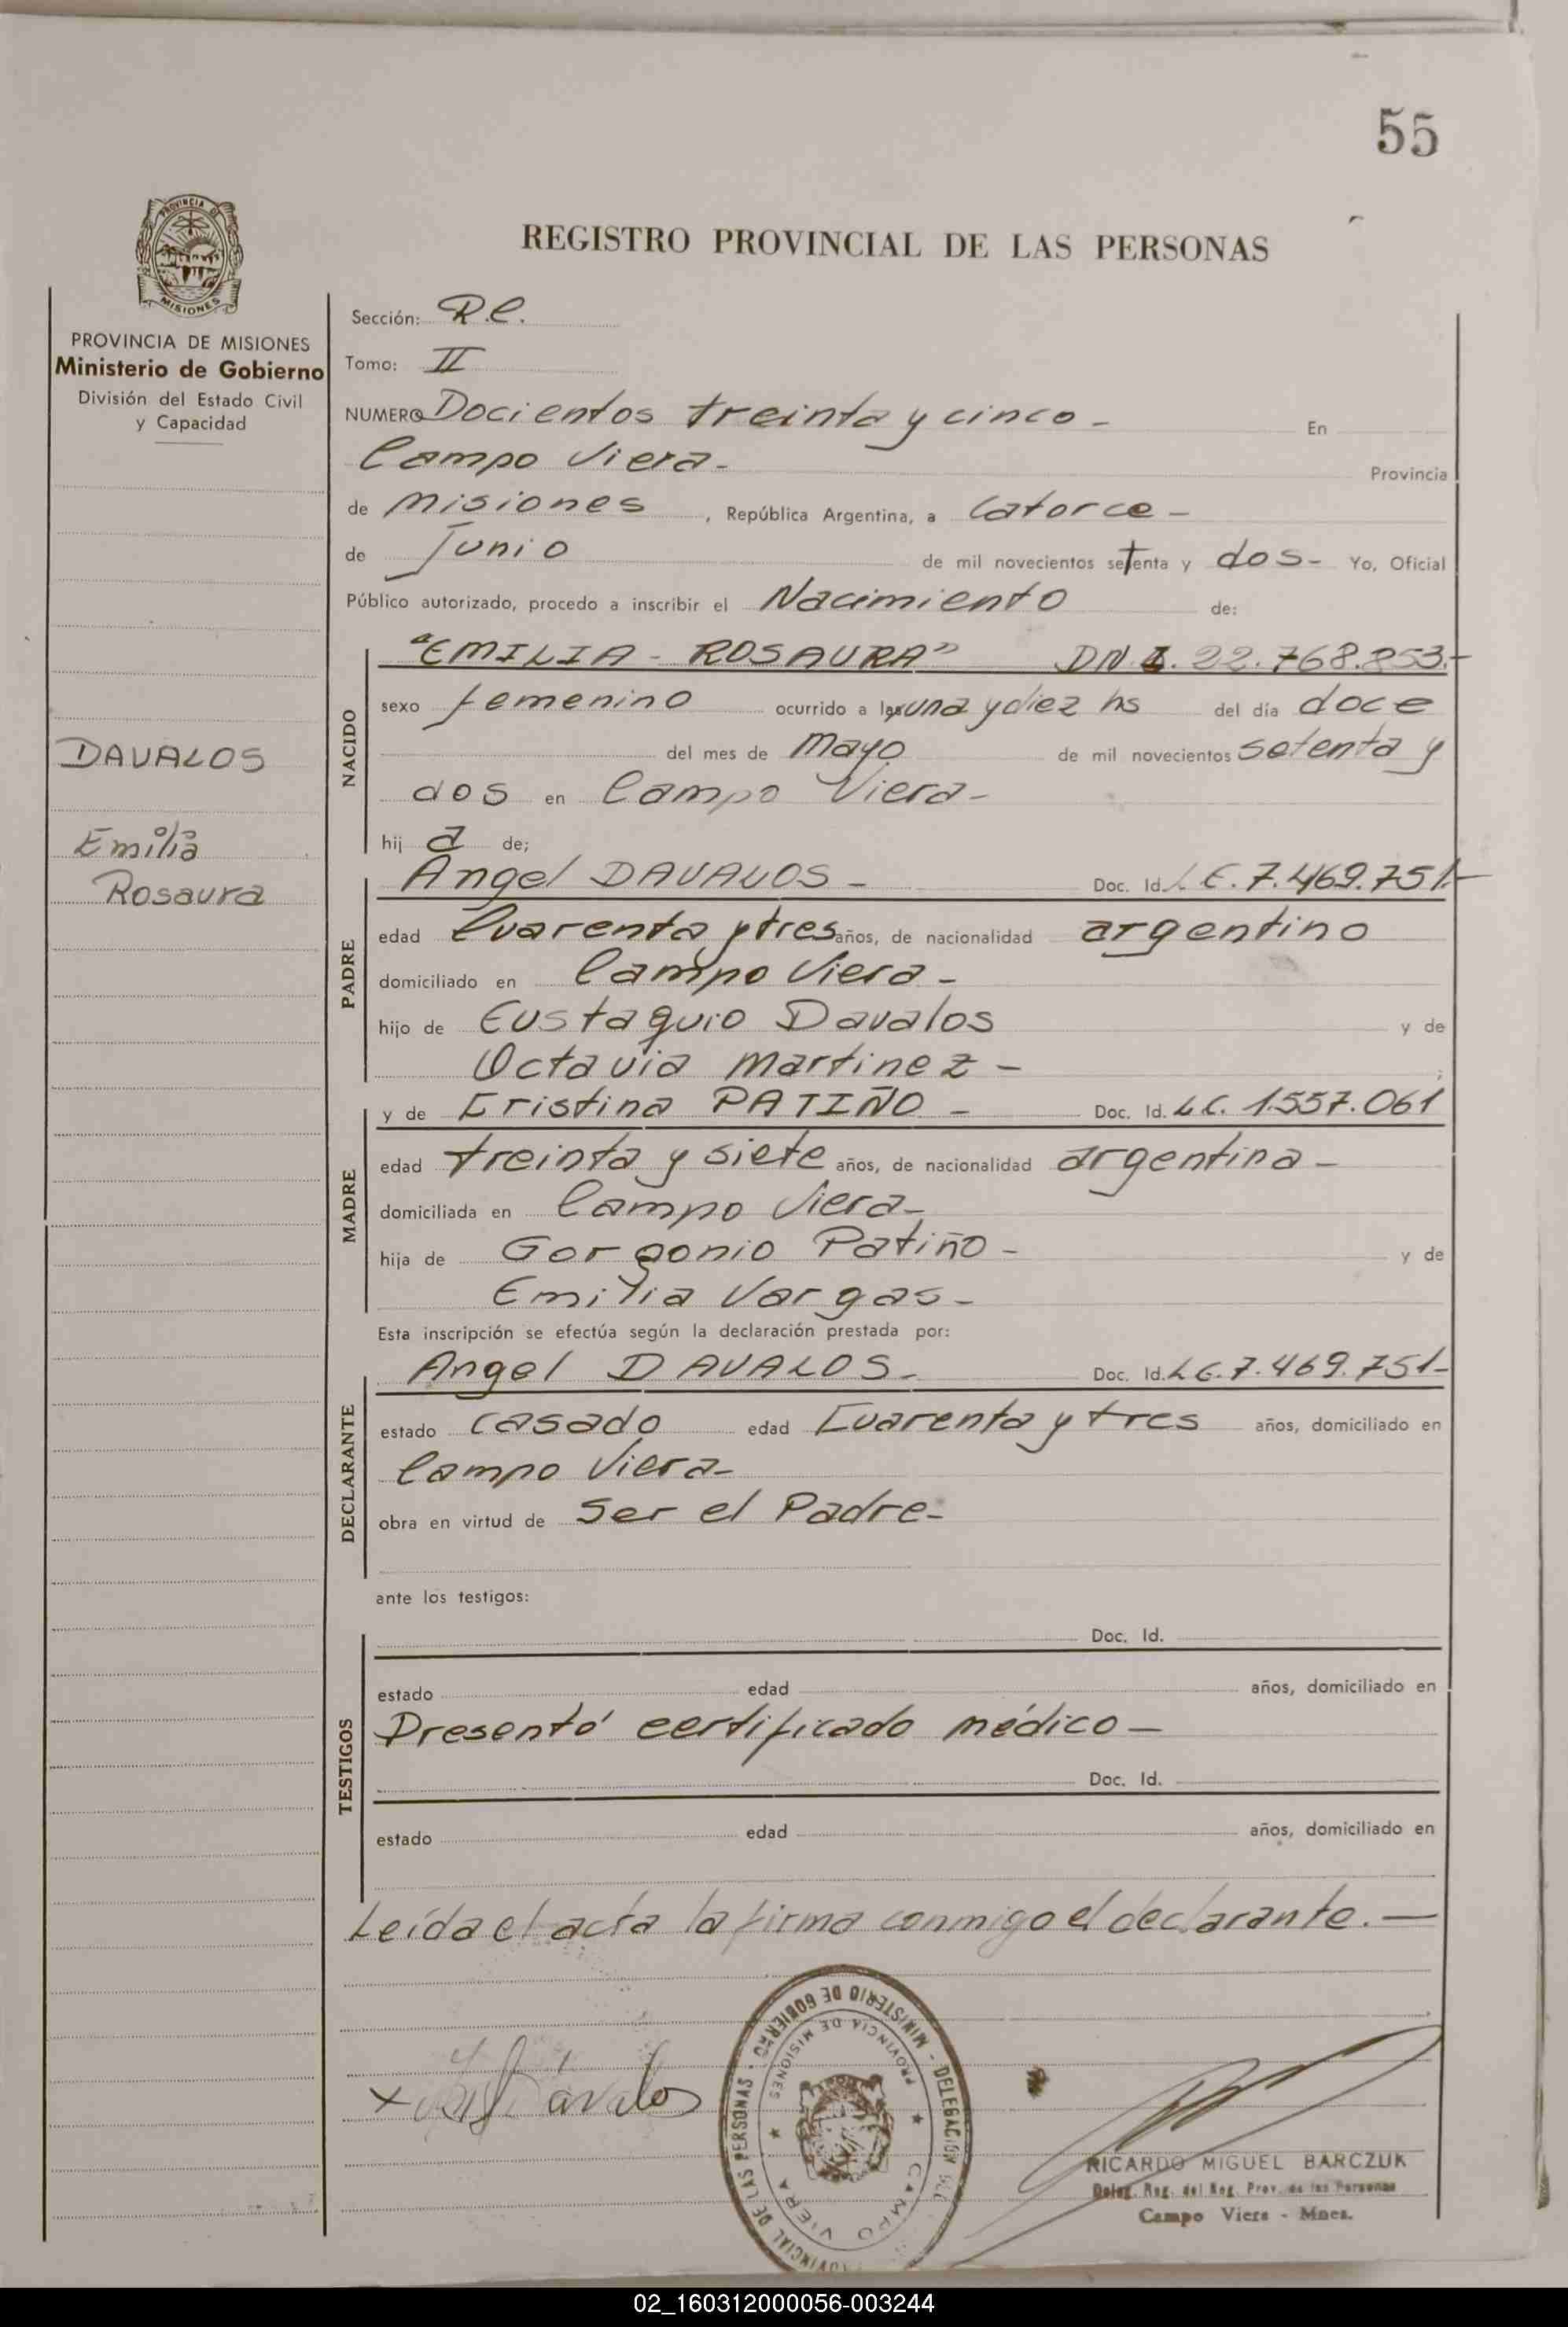 55
PROVINCIA DE
MISIONES
REGISTRO PROVINCIAL DE LAS PERSONAS
PROVINCIA DE MISIONES
Ministerio de Gobierno
División del Estado Civil
y Capacidad
DAVALOS
Emilia
Rosaura
Sección: R.C.
Tomo: II
NUMERO Docientos treinta y cinco - En
Campo Viera - Provincia
de Misiones, República Argentina, a Catorce -
de Junio de mil novecientos setenta y dos - Yo, Oficial
Público autorizado, procedo a inscribir el Nacimiento de:
NACIDO
"EMILIA - ROSAURA" DN.I. 22.768.853.-
sexo femenino ocurrido a las una y diez hs del día doce
del mes de Mayo de mil novecientos setenta y
dos en Campo Viera -
hij a de;
PADRE
Angel DAVALOS - Doc. Id. L.E. 7.469.751.-
edad Cuarenta y tres años, de nacionalidad argentino
domiciliado en Campo Viera -
hijo de Eustaquio Davalos y de
Octavia Martinez - ;
MADRE
y de Cristina PATIÑO - Doc. Id. L.C. 1.557.061
edad treinta y siete años, de nacionalidad argentina -
domiciliada en Campo Viera -
hija de Gorgonio Patiño - y de
Emilia Vargas -
Esta inscripción se efectúa según la declaración prestada por:
DECLARANTE
Angel DAVALOS - Doc. Id. L.E. 7.469.751-
estado casado edad Cuarenta y tres años, domiciliado en
Campo Viera -
obra en virtud de Ser el Padre -
ante los testigos:
TESTIGOS
Doc. Id.
estado edad años, domiciliado en
Presentó certificado médico -
Doc. Id.
estado edad años, domiciliado en
Leída el acta la firma conmigo el declarante. -
x Dávalos
PROVINCIAL DE LAS PERSONAS - MINISTERIO DE GOBIERNO - DELEGACION
PROVINCIA DE MISIONES
CAMPO VIERA
RICARDO MIGUEL BARCZUK
Deleg. Reg. del Reg. Prov. de las Personas
Campo Viera - Mnes.
02_160312000056-003244